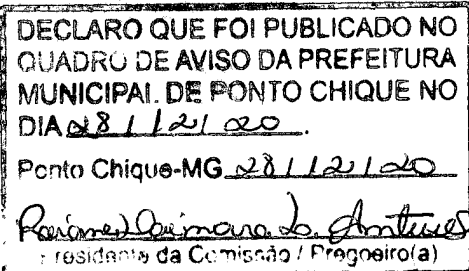 DECLARO QUE FOI PUBLICADO NO
QUADRO DE AVISO DA PREFEITURA
MUNICIPAL DE PONTO CHIQUE NO
DIA 28/12/20.
Ponto Chique-MG 28/12/20
Antunes
Presidente da Comissão / Pregoeiro(a)